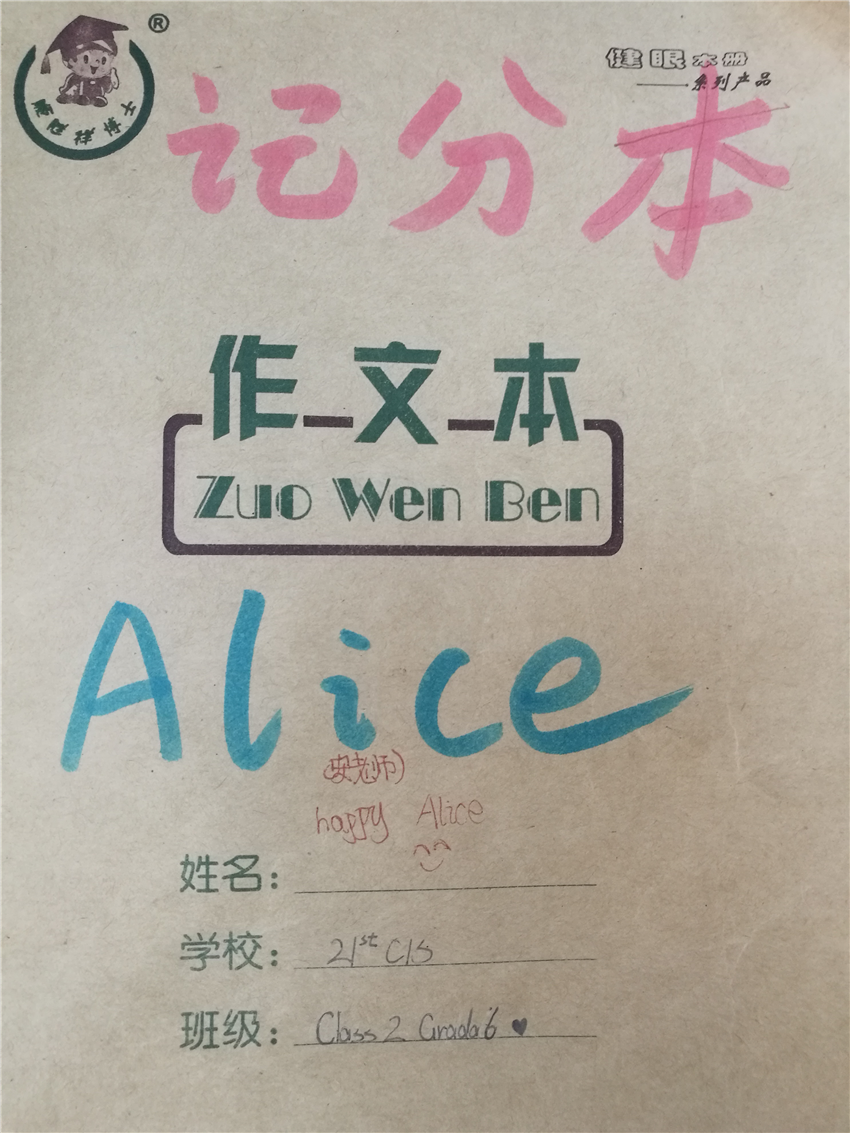 ®
健眼本册
——系列产品
记分本
作文本
Zuo Wen Ben
Alice
(安老师)
happy Alice
姓名：
学校： 21st CIS
班级： Class 2 Grade 6 ♥